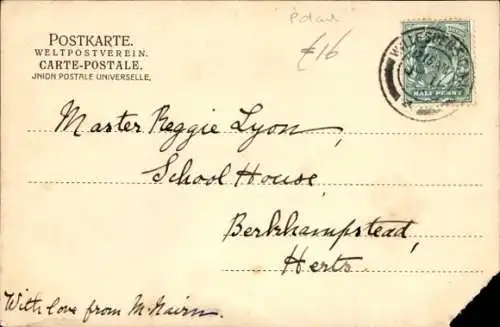 POSTKARTE.
WELTPOSTVEREIN.
CARTE-POSTALE.
UNION POSTALE UNIVERSELLE.
£16
HALF PENNY
Master Reggie Lyon,
School House,
Berkhampstead,
Herts.
With love from M. Nairn.